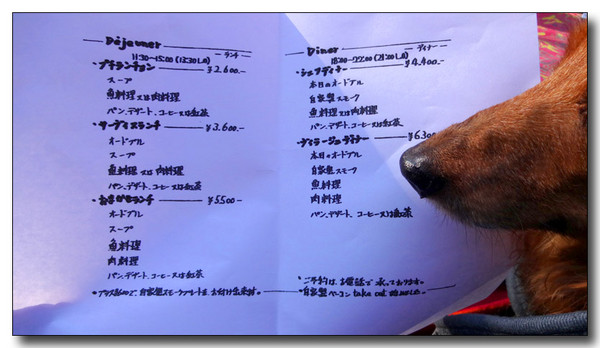 Déjeuner ランチ
11:30~15:00 (13:30 L.O)
・プチランチョン ¥2.600.-
スープ
魚料理又は肉料理
パン、デザート、コーヒー又は紅茶
¥3.600.-
オードブル
スープ
魚料理又は肉料理
パン、デザート、コーヒー又は紅茶
・おまかせランチ ¥5500-
オードブル
スープ
魚料理
肉料理
パン、デザート、コーヒー又は紅茶
自家製スモークプレートを お付け出来ます。
Diner ディナー
18:00~22:00 (21:00 L.O)
・シェフディナー ¥4.400.-
本日のオードブル
自家製スモーク
魚料理又は肉料理
パン、デザート、コーヒー又は紅茶
ディナー ¥630
本日のオードブル
自家製スモーク
魚料理
肉料理
パン、デザート、コーヒー又は紅茶
・ご予約は、お電話で 承っております。
・自家製ベーコン take out